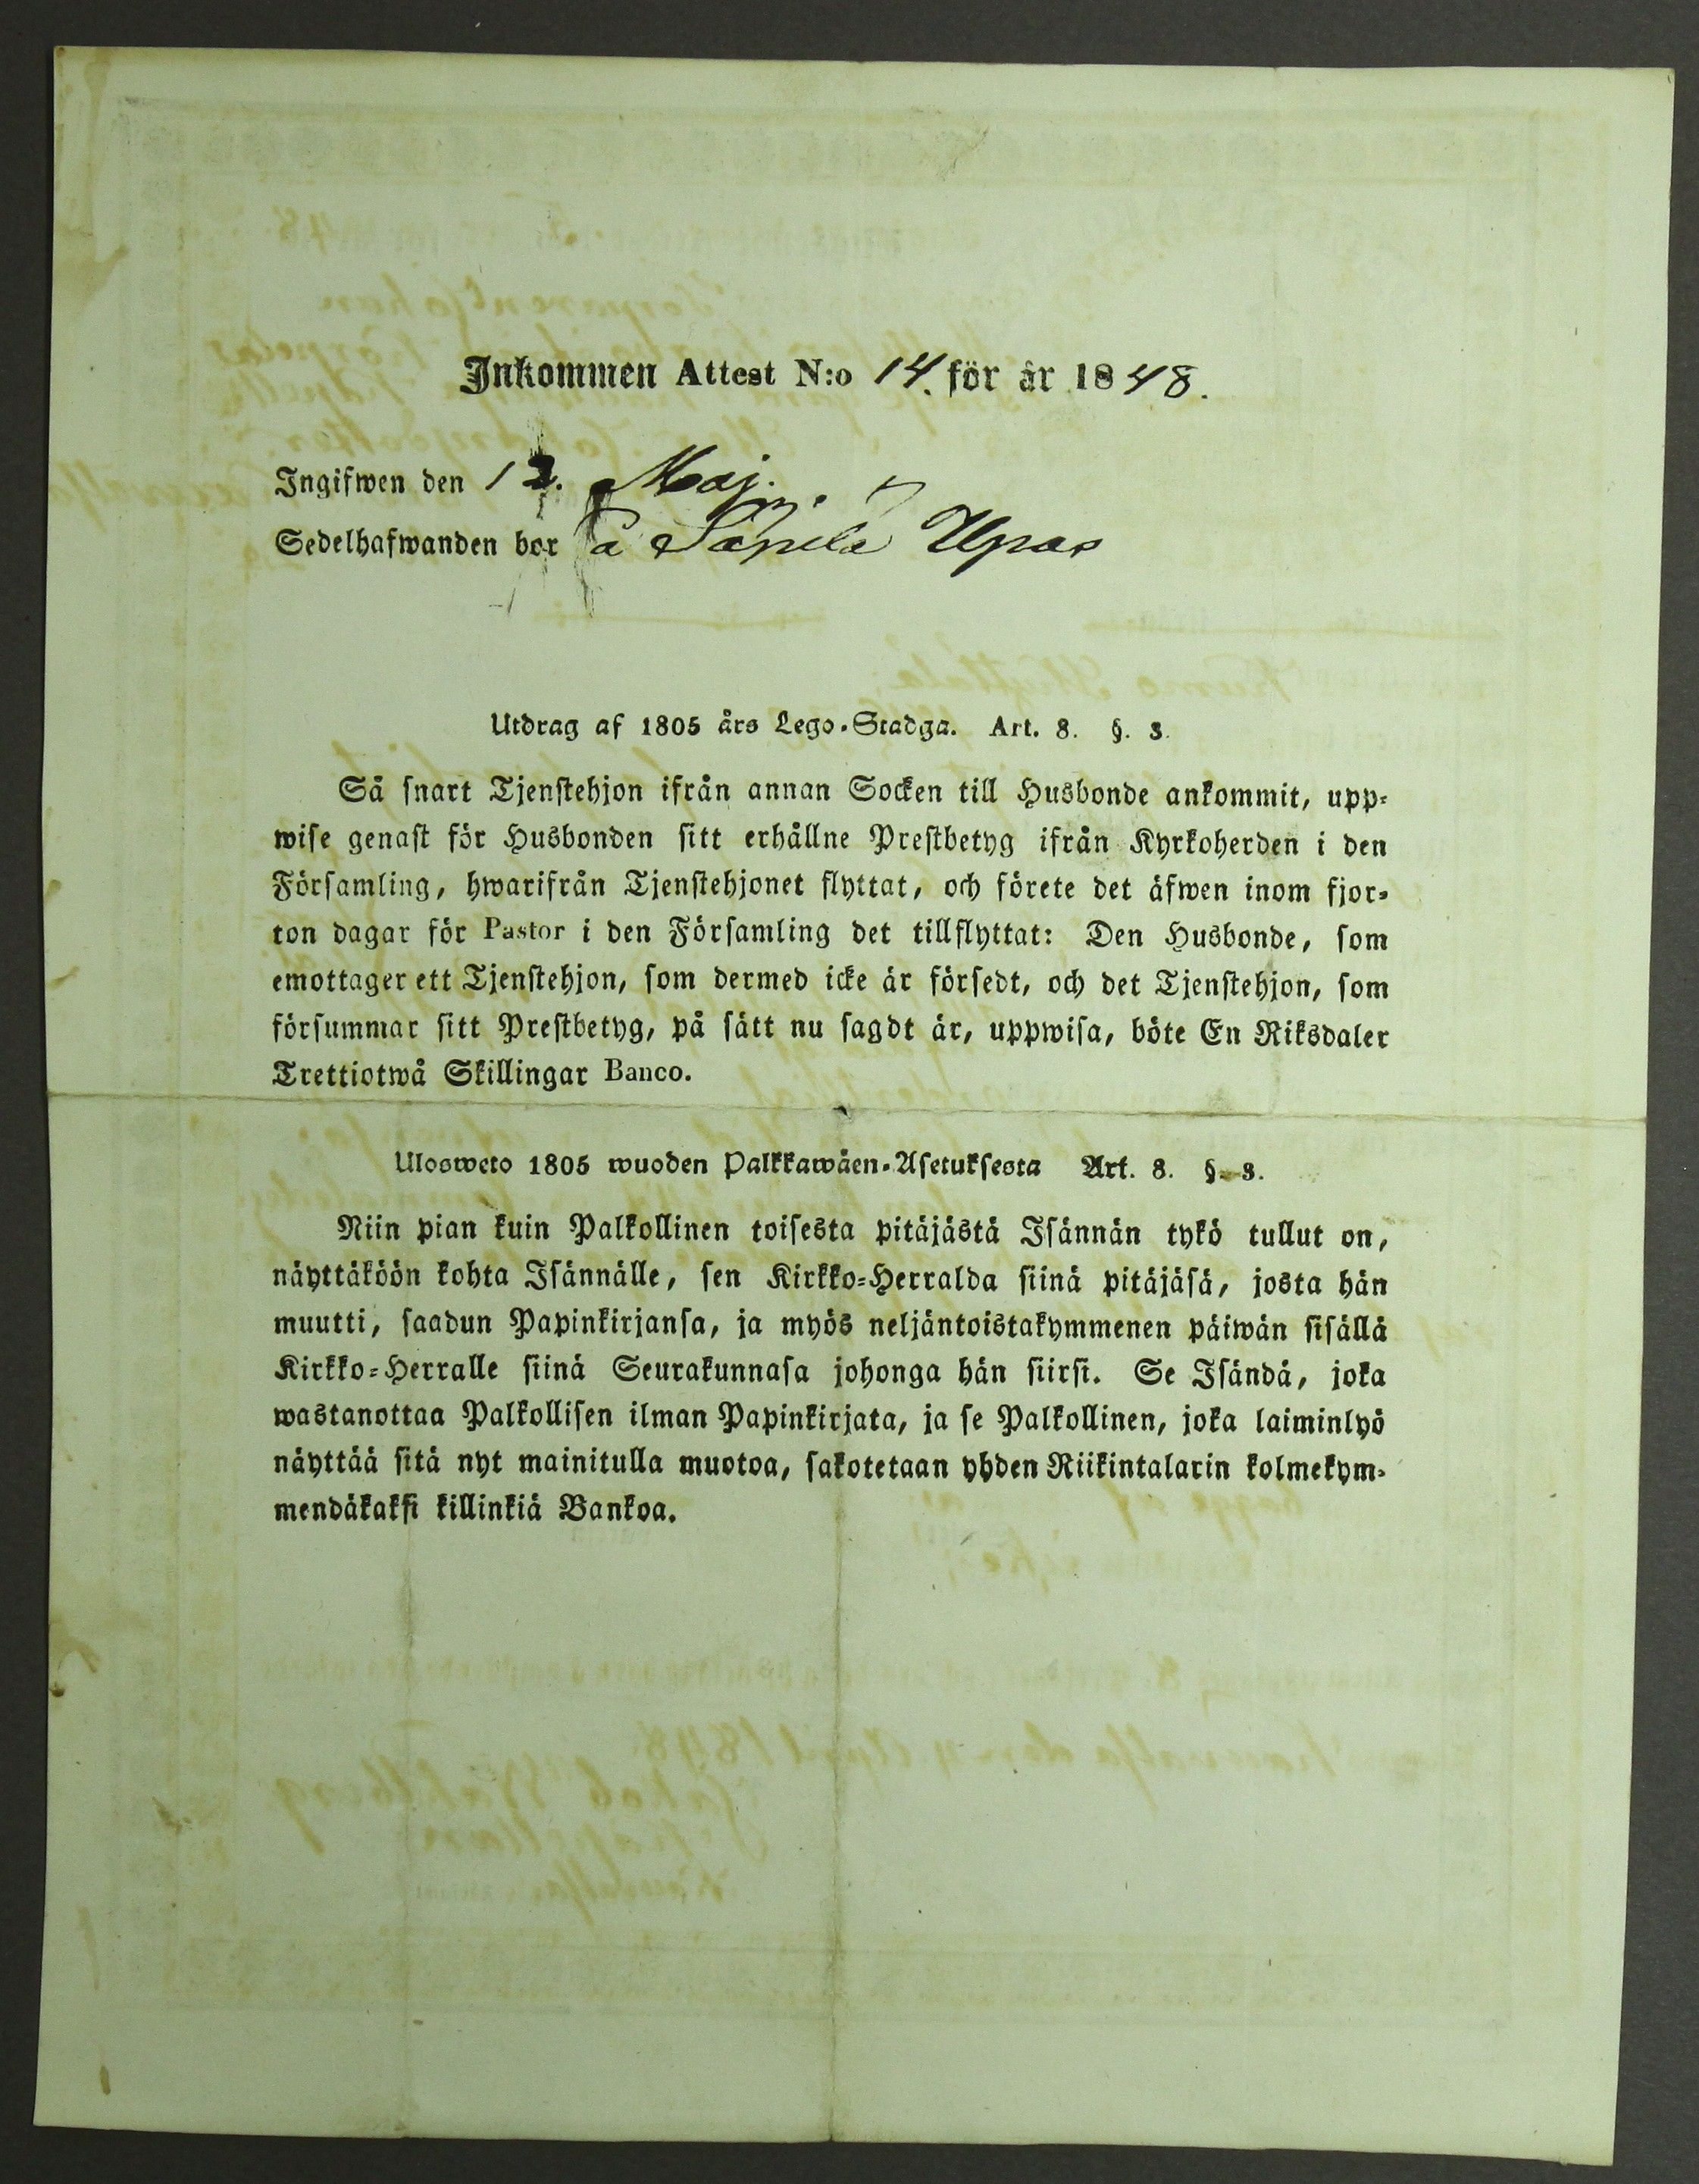 Inkommen Attest N:o 14. för år 1848.
Ingifwen den 12. Maj.
Sedelhafwanden bor på Säpilä Upas
Utdrag af 1805 års Lego-Stadga. Art. 8. §. 3.
Så snart Tjenstehjon ifrån annan Socken till Husbonde ankommit, upp-
wise genast för Husbonden sitt erhållne Prestbetyg ifrån Kyrkoherden i den
Församling, hwarifrån Tjenstehjonet flyttat, och förete det äfwen inom fjor-
ton dagar för Pastor i den Församling det tillflyttat: Den Husbonde, som
emottager ett Tjenstehjon, som dermed icke är försedt, och det Tjenstehjon, som
försummar sitt Prestbetyg, på sätt nu sagdt är, uppwisa, böte En Riksdaler
Trettiotwå Skillingar Banco.
Ulosweto 1805 wuoden Palkkawäen-Asetuksesta Art. 8. §. 3.
Niin pian kuin Palkollinen toisesta pitäjästä Isännän tykö tullut on,
näyttäköön kohta Isännälle, sen Kirkko-Herralda siinä pitäjäsä, josta hän
muutti, saadun Papinkirjansa, ja myös neljäntoistakymmenen päiwän sisällä
Kirkko-Herralle siinä Seurakunnasa johonga hän siirsi. Se Isändä, joka
wastanottaa Palkollisen ilman Papinkirjata, ja se Palkollinen, joka laiminlyö
näyttää sitä nyt mainitulla muotoa, sakotetaan yhden Riikintalarin kolmekym-
mendäkaksi killinkiä Bankoa.